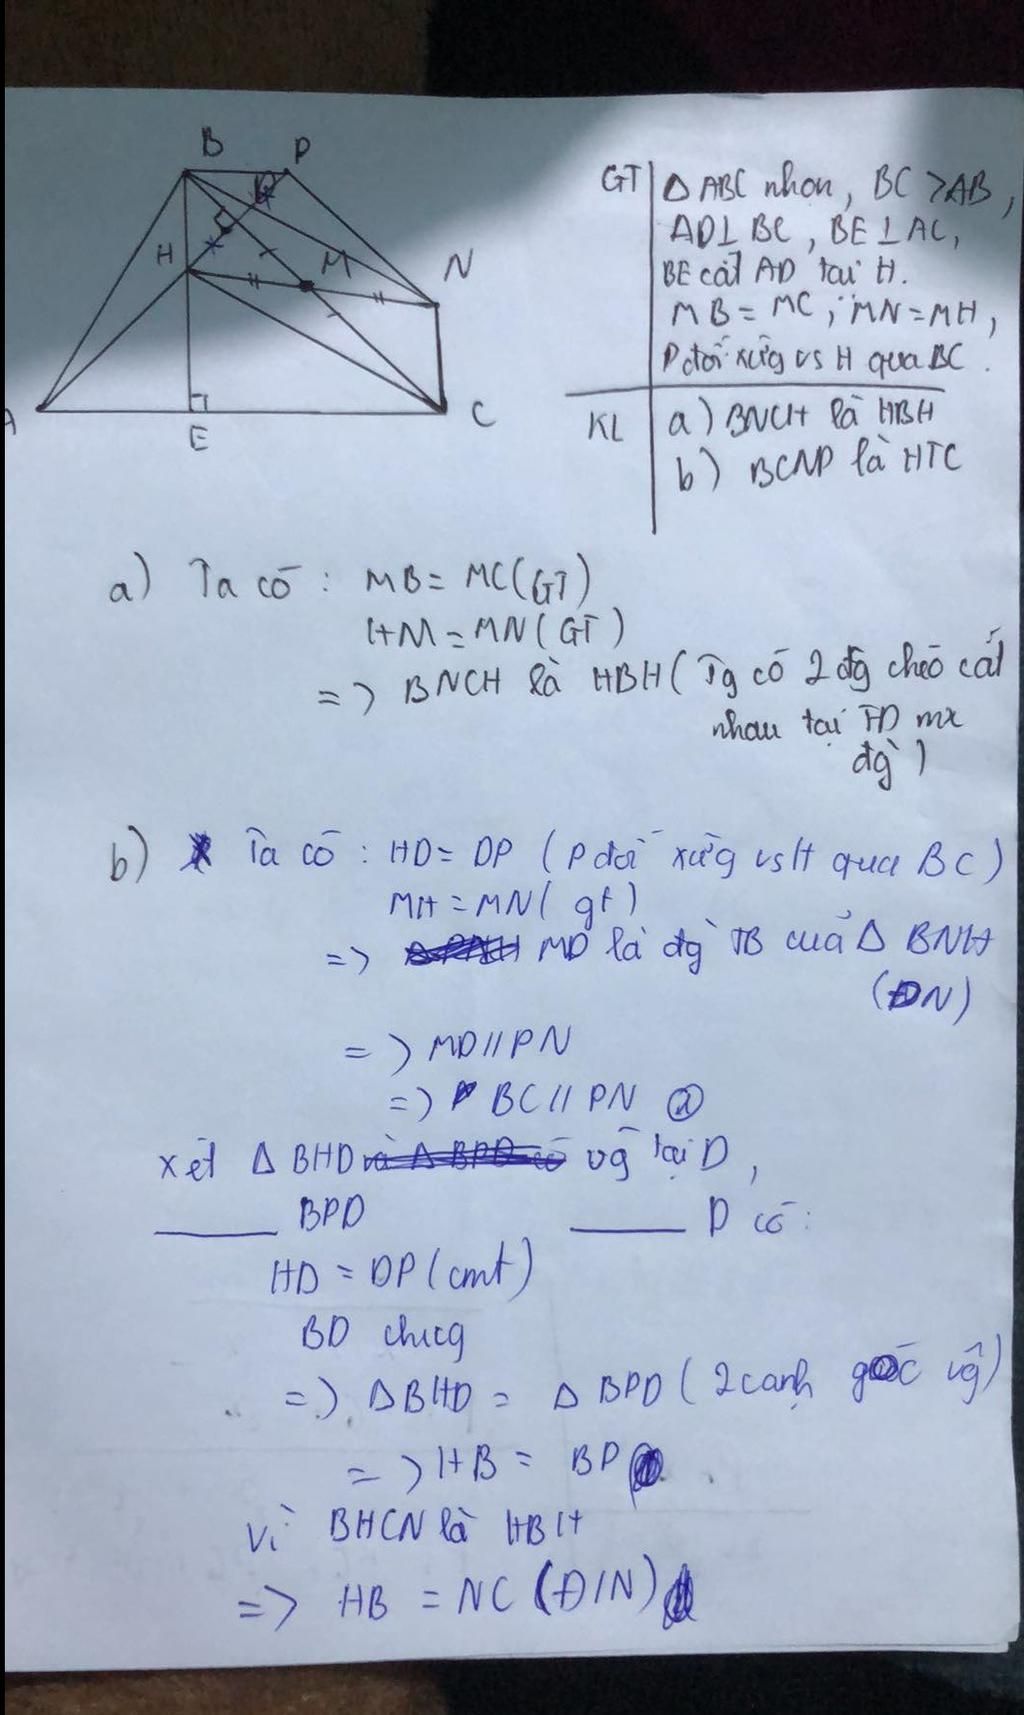 B P
D
H M N
A E C
GT Δ ABC nhọn, BC > AB,
AD⊥ BC, BE ⊥ AC,
BE cắt AD tại H.
MB = MC; MN = MH,
P đối xứg vs H qua BC.
KL a) BNCH là HBH
b) BCNP là HTC
a) Ta có: MB = MC (GT)
HM = MN (GT)
=> BNCH là HBH (Tg có 2 đg chéo cắt
nhau tại TD mx
đg)
b) Ta có: HD = DP (P đối xứg vs H qua BC)
MH = MN (gt)
=> MD là đg TB của Δ BNH
(ĐN)
=> MD // PN
=> BC // PN
xét Δ BHD vg tại D,
BPD D có:
HD = DP (cmt)
BD chug
=> Δ BHD = Δ BPD (2 cạnh góc vg)
=> HB = BP
Vì BHCN là HBH
=> HB = NC (Đ/N)